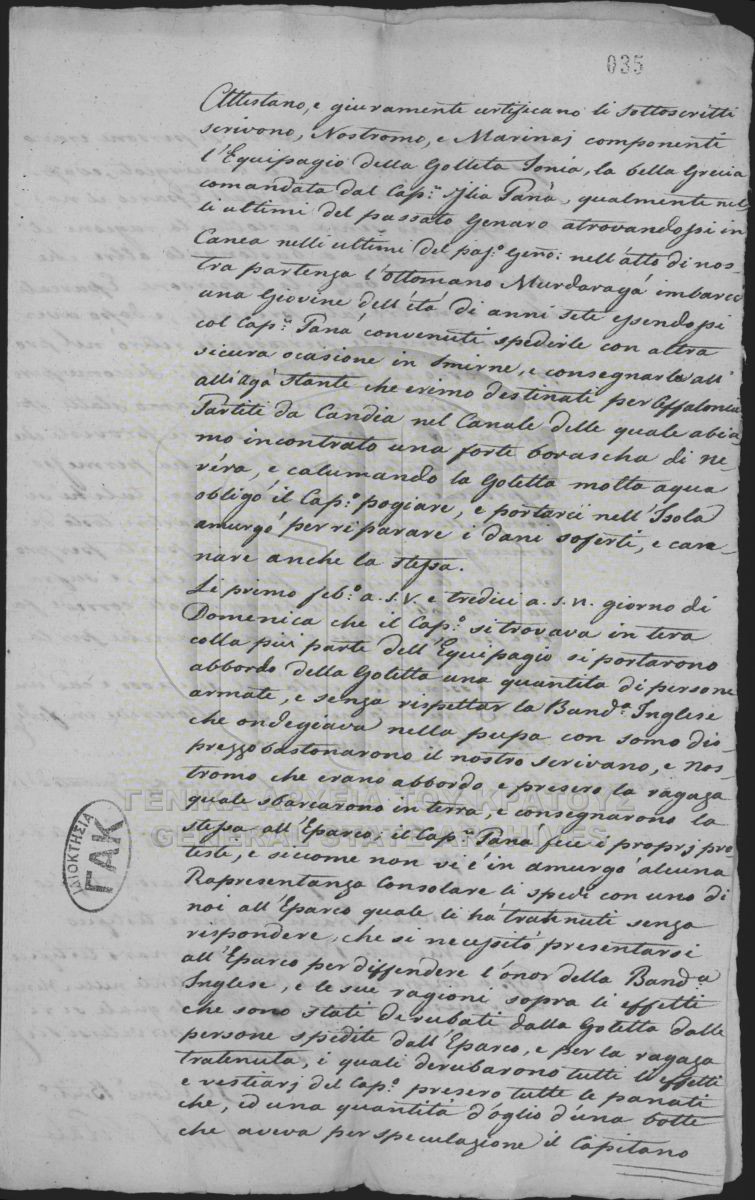 035
Attestano, e giuramente certificano li sottoscritti
scrivono, Nostromo, e Marinaj componenti
l'Equipagio della Golletta Ionia, la bella Grecia
comandata dal Cap:n Ilia Panà, qualmente nel-
li ultimi del passato Genaro atrovandossi in
Canea nelli ultimi del pas:o Gen̅o: nell'atto di nos-
tra partenza l'Ottomano Murdaragà imbarcò
una Giovine dell'età di anni sete essendosi
col Cap:n Panà convenuti spedirle con altra
sicura ocasione in Smirne, e consegnarla all'
all'Agà stante che erimo destinati per Ceffalonia
Partiti da Candia nel Canale delle quale abia-
mo incontrato una forte borascha di ne-
véra, e calumando la Goletta molta aqua
obligò il Cap:o pogiare, e portarci nell'Isola
amurgò per riparare i dani soferti, e care-
nare anche la stessa.
Li primo feb:o a.s.v. e tredici a.s.n. giorno di
Domenica che il Cap:o si trovava in tera
colla più parte dell'Equipagio si portarono
abbordo della Goletta una quantità di persone
armate, e senza respettar la Band:a Inglese
che ondegiava nella pupa con somo dis-
prezzo bastonarono il nostro scrivano, e nos-
tromo che erano abbordo e presero la ragaza
quale sbarcarono in terra, e consegnarono la
stessa all'Eparco, il Cap:n Panà fece i proprj pro-
teste, e siccome non vi è in amurgò alcuna
Rapresentanza Consolare li spedì con uno di
noi all'Eparco quale li hà tratenuti senza
respondere, che si necessitò presentarsi
all'Eparco per diffendere l'onor della Band:a
Inglese, e le sue ragioni sopra li effetti
che sono stati derubati dalla Goletta dalle
persone spedite dall'Eparco, e per la ragaza
tratenuta, i quali derubarono tutti li effetti
e vestiarj del Cap:o presero tutte le panati
che, ed una quantità d'oglio d'una botte
che aveva per speculazione il Capitano
ΙΔΙΟΚΤΗΣΙΑ
ΓΑΚ
ΓΕΝΙΚΑ ΑΡΧΕΙΑ ΤΟΥ ΚΡΑΤΟΥΣ
GENERAL STATE ARCHIVES